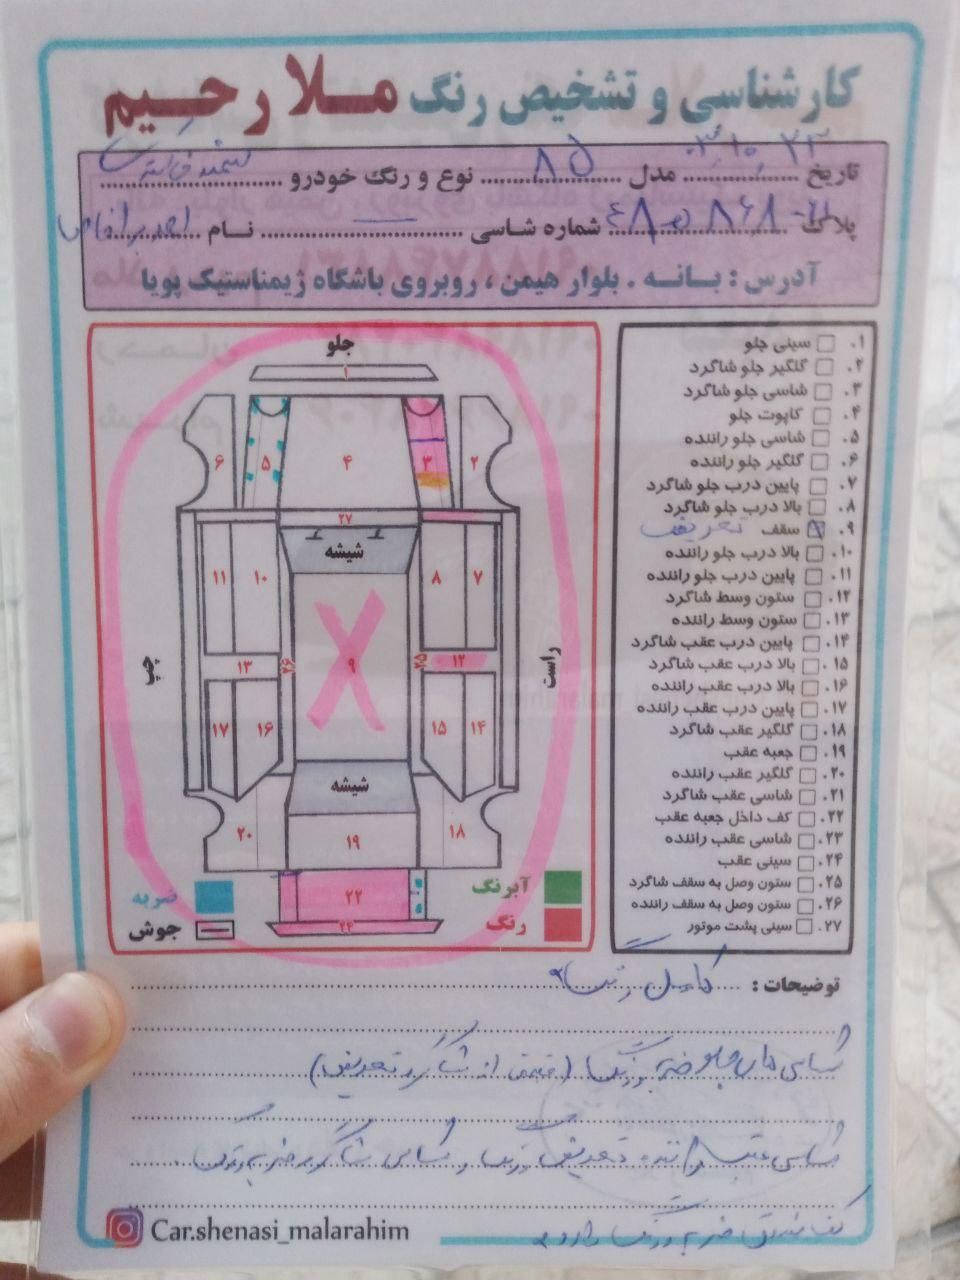 کارشناسی و تشخیص رنگ ملا رحیم
تاریخ ۰۳/۱۰/۲۳ مدل ۸۵ نوع و رنگ خودرو سمند
پلاک شماره شاسی نام
آدرس : بانه . بلوار هیمن ، روبروی باشگاه ژیمناستیک پویا
۱. سینی جلو
۲. گلگیر جلو شاگرد
۳. شاسی جلو شاگرد
۴. کاپوت جلو
۵. شاسی جلو راننده
۶. گلگیر جلو راننده
۷. پایین درب جلو شاگرد
۸. بالا درب جلو شاگرد
۹. سقف تعویض
۱۰. بالا درب جلو راننده
۱۱. پایین درب جلو راننده
۱۲. ستون وسط شاگرد
۱۳. ستون وسط راننده
۱۴. پایین درب عقب شاگرد
۱۵. بالا درب عقب شاگرد
۱۶. بالا درب عقب راننده
۱۷. پایین درب عقب راننده
۱۸. گلگیر عقب شاگرد
۱۹. جعبه عقب
۲۰. گلگیر عقب راننده
۲۱. شاسی عقب شاگرد
۲۲. کف داخل جعبه عقب
۲۳. شاسی عقب راننده
۲۴. سینی عقب
۲۵. ستون وصل به سقف شاگرد
۲۶. ستون وصل به سقف راننده
۲۷. سینی پشت موتور
جلو
۱
۲ ۳ ۴ ۵ ۶
۲۷
شیشه
۷ ۸ ۱۰ ۱۱
راست ۱۲ ۲۵ ۹ ۲۶ ۱۳ چپ
۱۴ ۱۵ ۱۶ ۱۷
شیشه
۱۸ ۱۹ ۲۰
۲۲
۲۴
آبرنگ ضربه
رنگ جوش
توضیحات : کامل رنگ
شاسی های جلو ضربه و رنگ (نصفی از شاگرد تعویض)
شاسی عقب راننده تعویض و رنگ و شاسی شاگرد ضربه و رنگ .
کف صندوق ضربه و رنگ دارد
Car.shenasi_malarahim